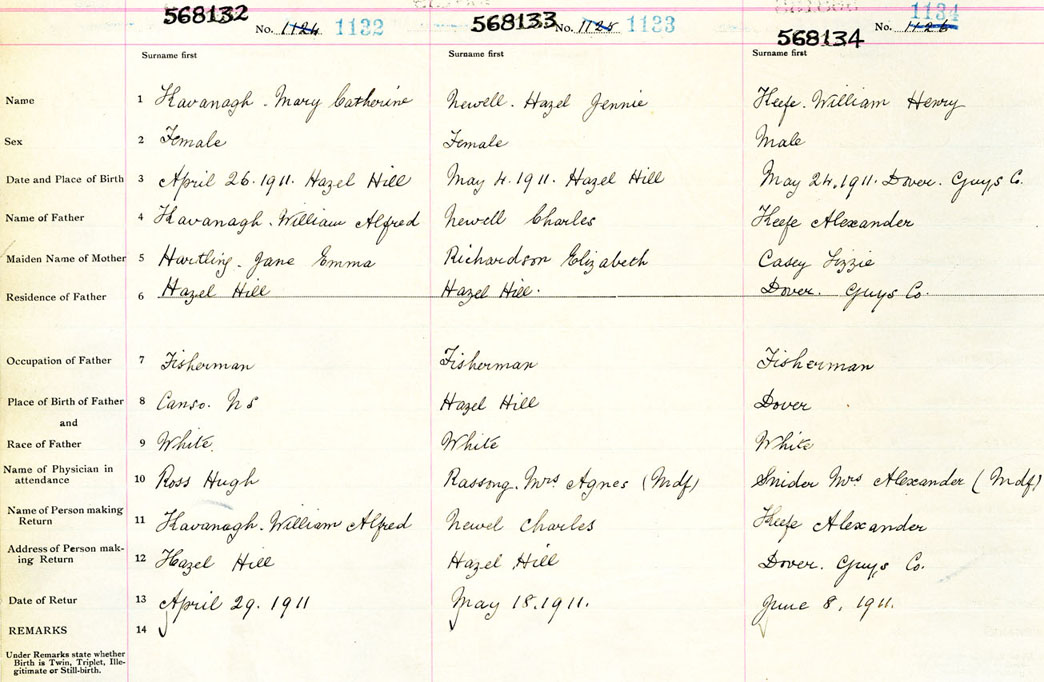 568132 568133 568134
No. 1124 1132 No. 1125 1133 No. 1126 1134
Surname first Surname first Surname first
Name 1 Kavanagh. Mary Catherine Newell. Hazel Jennie Keefe. William Henry
Sex 2 Female Female Male
Date and Place of Birth 3 April 26. 1911. Hazel Hill May 4. 1911. Hazel Hill May 24, 1911. Dover. Guys Co.
Name of Father 4 Kavanagh. William Alfred Newell Charles Keefe Alexander
Maiden Name of Mother 5 Hurtling. Jane Emma Richardson Elizabeth Casey Lizzie
Residence of Father 6 Hazel Hill Hazel Hill. Dover. Guys Co.
Occupation of Father 7 Fisherman Fisherman Fisherman
Place of Birth of Father 8 Canso. N S Hazel Hill Dover
and
Race of Father 9 White. White White
Name of Physician in
attendance 10 Ross Hugh Rassong. Mrs Agnes (Mdf) Snider Mrs Alexander (Mdf)
Name of Person making
Return 11 Kavanagh. William Alfred Newel Charles Keefe Alexander
Address of Person mak-
ing Return 12 Hazel Hill Hazel Hill Dover. Guys Co.
Date of Retur 13 April 29. 1911 May 18. 1911. June 8, 1911.
REMARKS 14
Under Remarks state whether
Birth is Twin, Triplet, Ille-
gitimate or Still-birth.